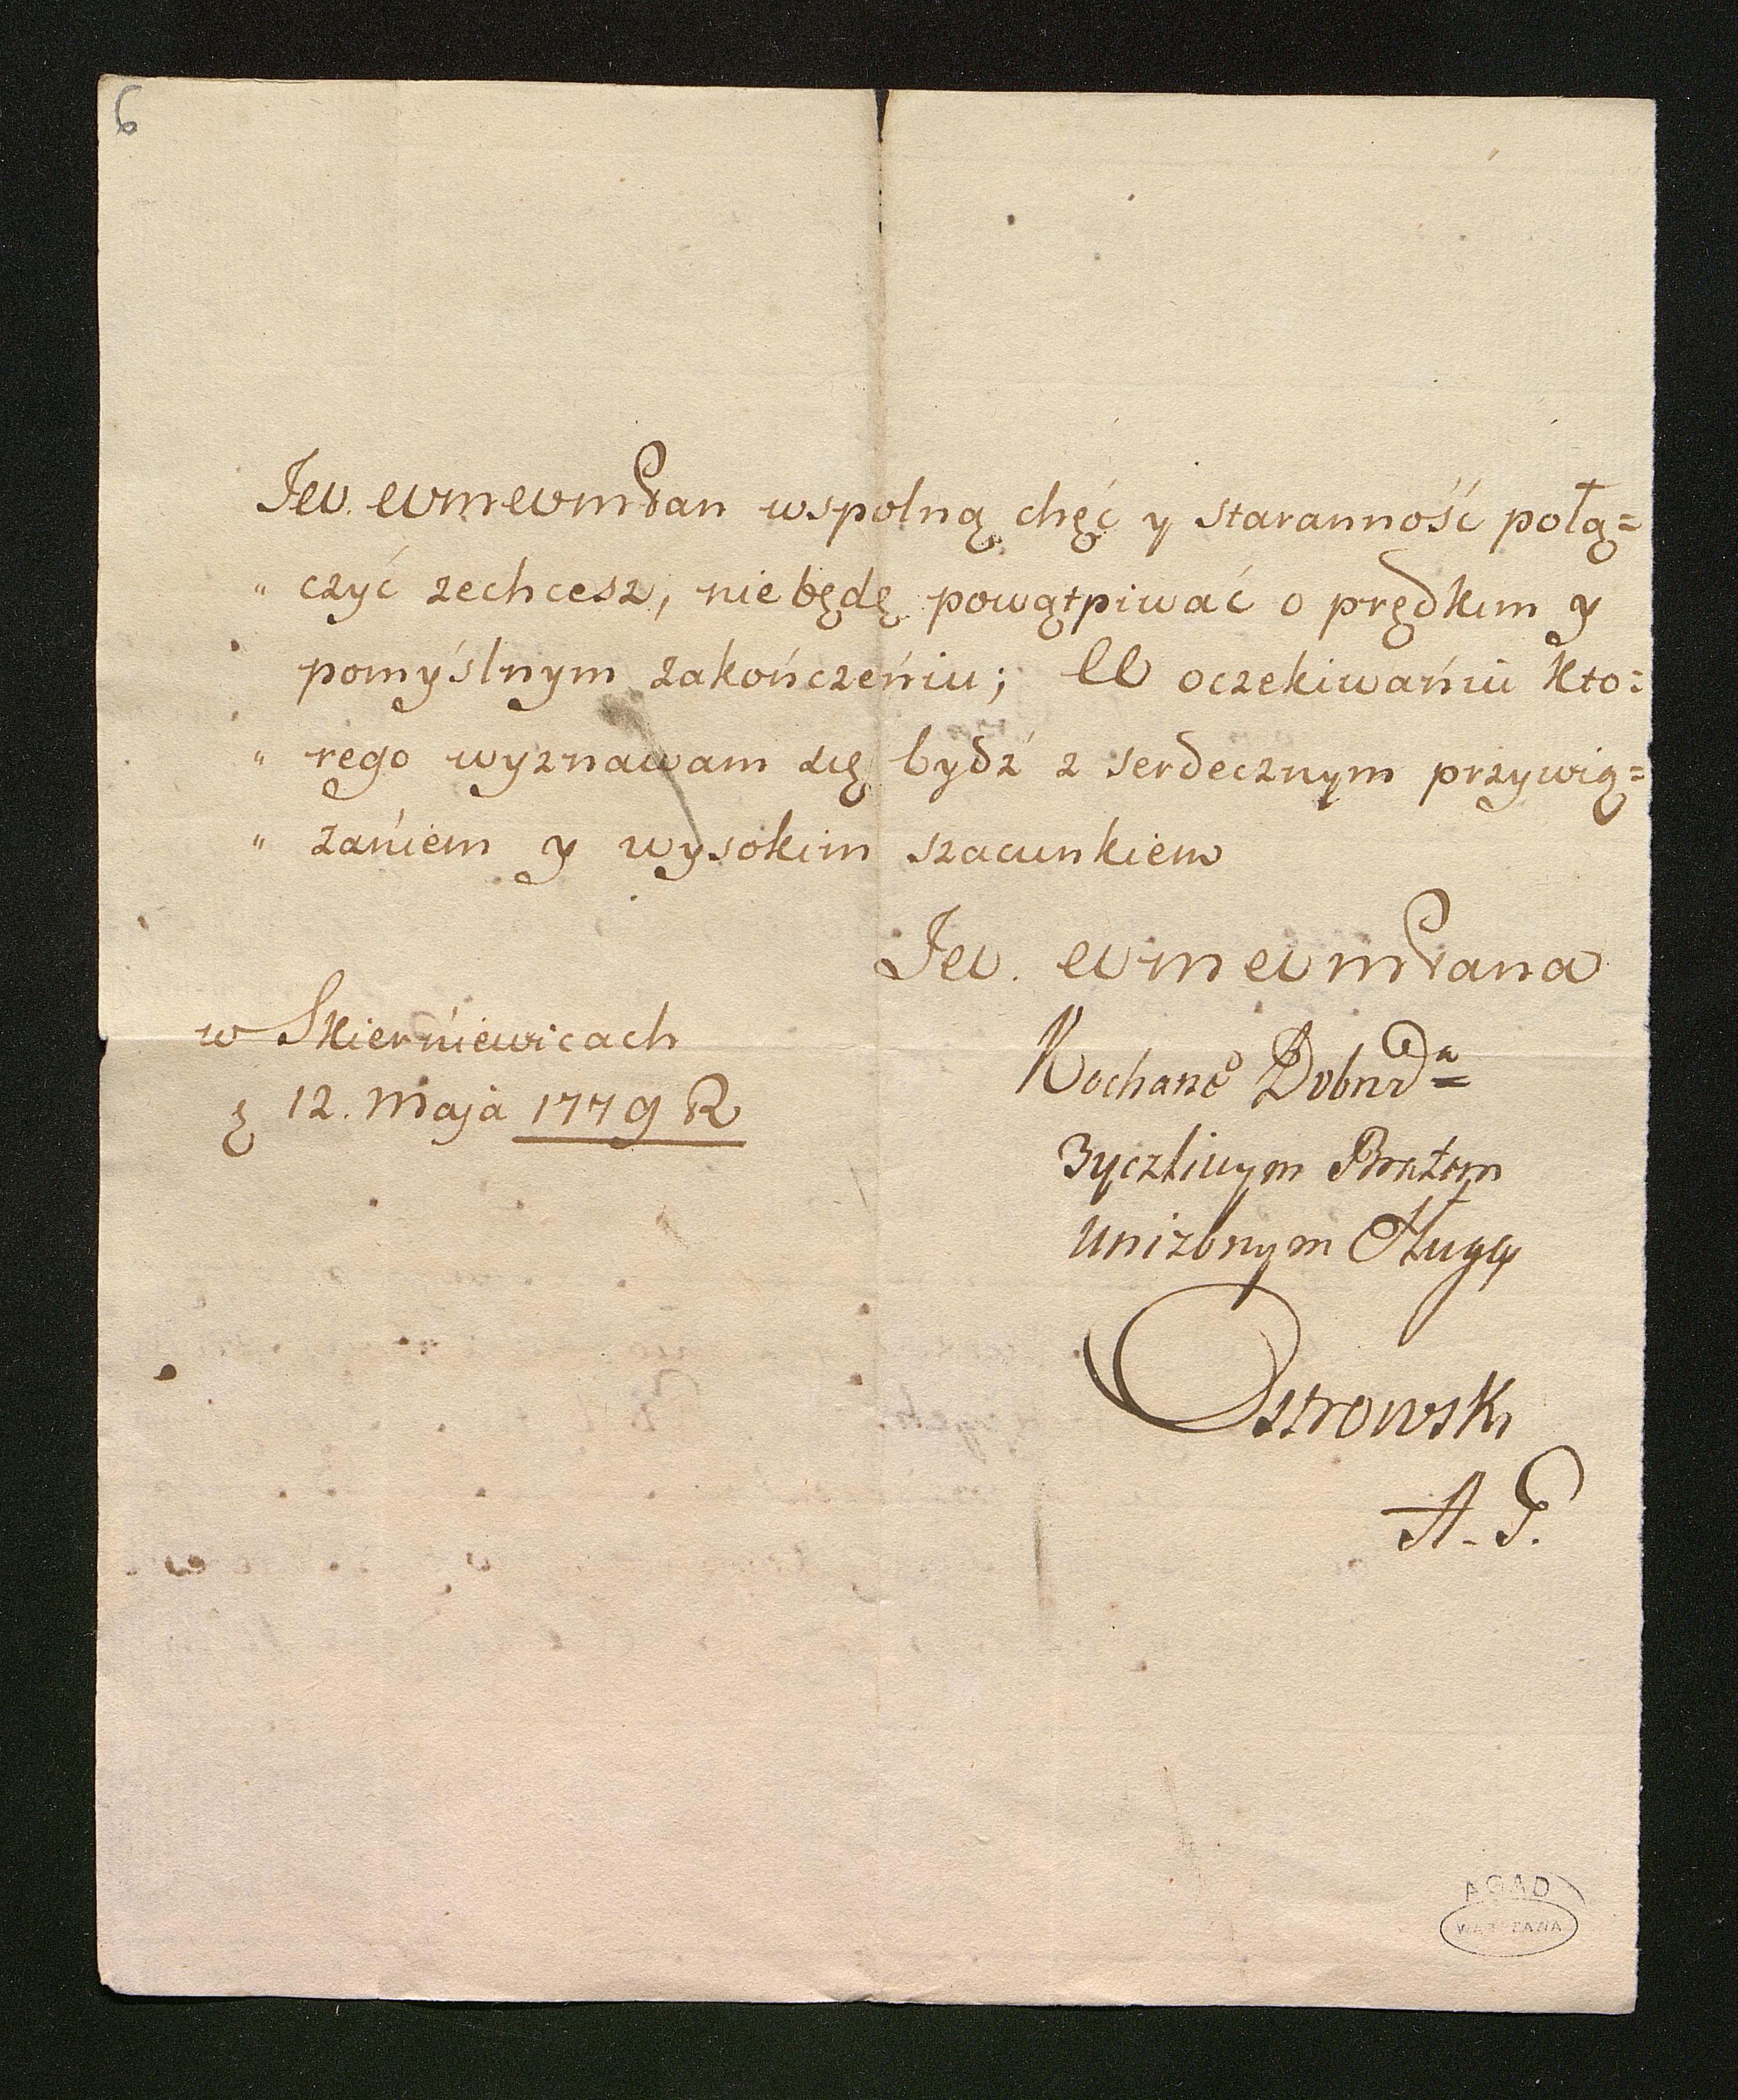 6
JW. WMWMPan wspolną chęć y staranność połą=
„ czyć zechcesz, niebędę powątpiwać o prędkim y
pomyślnym zakończeńiu; W oczekiwańiu kto=
„ rego wyznawam się bydź z serdecznym przywią=
„ zańiem y wysokim szacunkiem
JW. WMWMPana
w Skierńiewicach
12. Maja 1779 R
Kochano
Zyczliwym Bratem
Unizonym Sługą
Ostrowski
A. G.
AGAD
WARSZAWA